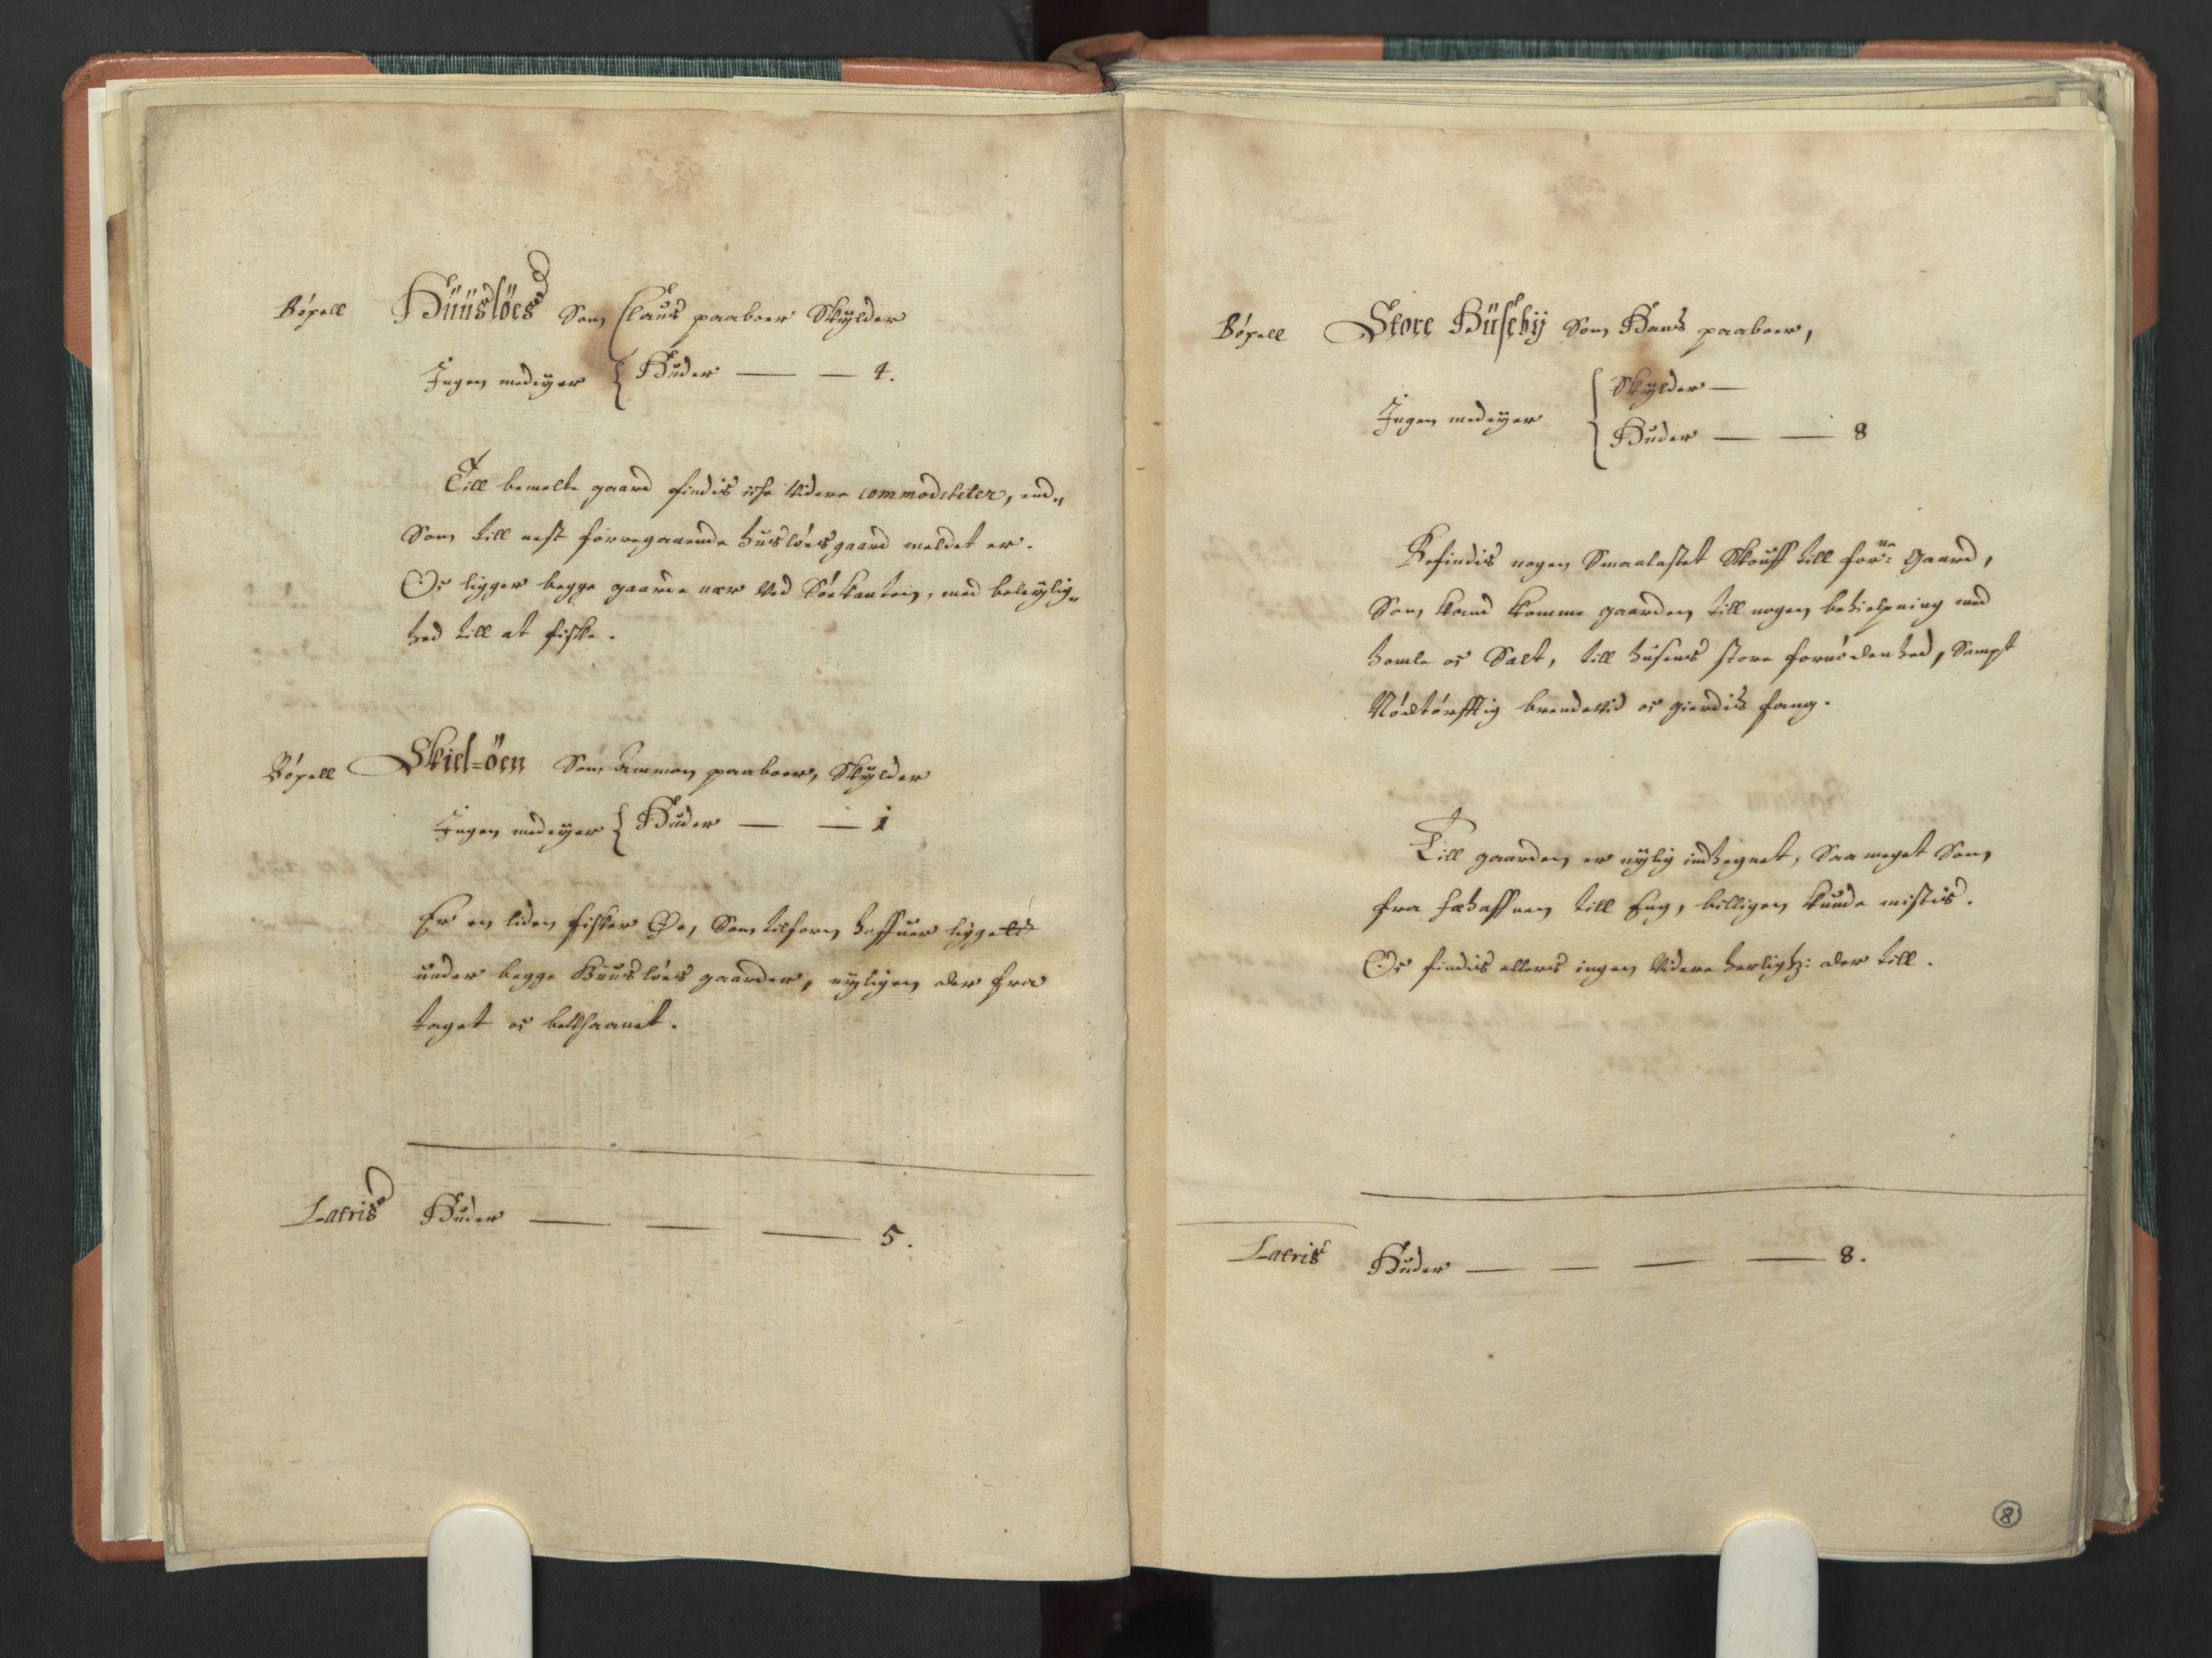 Böxell Hüüslöes Som Claus paaboer Skÿlder
Ingen medeÿer { Huder — — 4.
Till bemelte gaard findis iche Videre commoditeter, end„
Som till nest forregaaende huslöes gaard meldet er.
Oc ligger begge gaarde nær Ved Söekanten, med beleÿlig„
hed till at fiske.
Böxell Skiel=öen Som Ammon paaboer, Skÿlder
Ingen medeÿer { Huder — — 1
Er en liden fisker Öe, Som tilforn haffuer ligget
under begge Hüuslöes gaarder, nÿligen der fra
taget oc
Lateris Huder — — — 5.
Böxell Store Büsebÿ Som Hans paaboer,
Skÿlder —
Ingen medeÿer {
Huder — — 8
Befindis nogen Smaalastet Skouff till forne: Gaard,
Som kand komme gaarden till nogen behielpning med
homle oc Salt, till husens store fornödenhed, Sampt
Nödtörfftig brendeVid oc gierdis fang.
Till gaarden er nÿlig indhegnet, Saa meget Som
fra fæhaffnen till Eng, billigen kunde mistis.
Oc findis ellers ingen Videre herlighz: der till.
Lateris Huder — — — — 8.
8